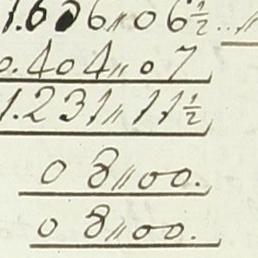 1.636〃06½...〃
0.404〃07
1.231〃11½
08〃00.
08〃00.